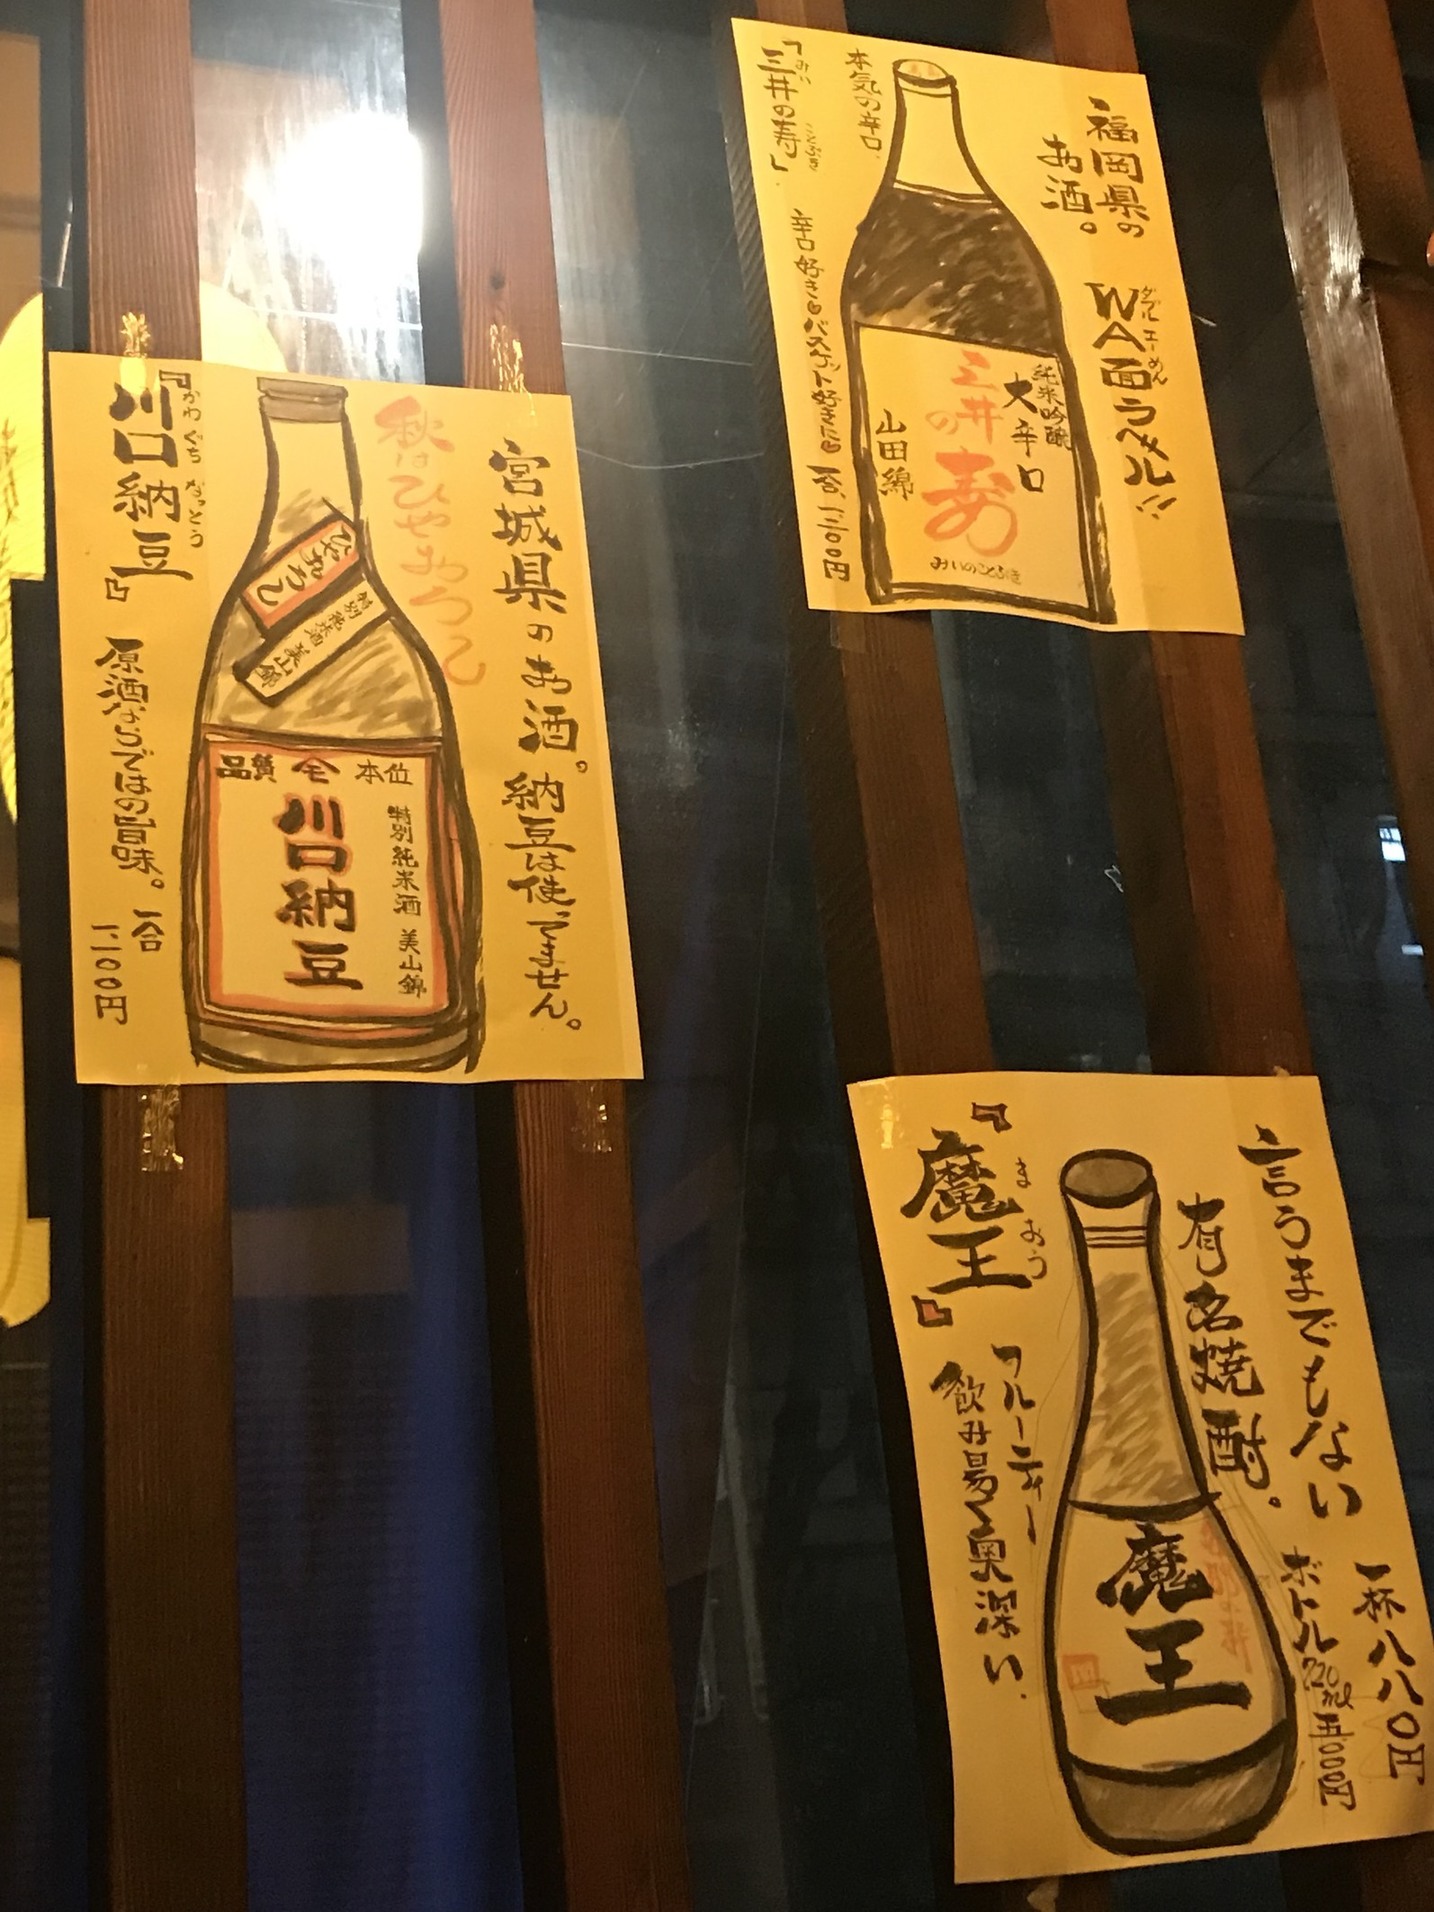 福岡県の
お酒。
WA面ラベル!!
ダブルエーめん
純米吟醸
大辛口
三井の寿
山田錦
みいのことぶき
本気の辛口
「三井の寿」
みい ことぶき
辛口好きもバスケット好きにも
一合、
円
宮城県のお酒。納豆は使ってません。
秋はひやおろし
ひやおろし
特別純米酒 美山錦
品質 本位
特別純米酒 美山錦
川口納豆
『川口納豆』
かわぐち なっとう
原酒ならではの旨味。
一合
一、一〇〇円
言うまでもない
有名焼酎。
一杯八八〇円
ボトル720ml五〇〇〇円
魔王
『魔王』
まおう
フルーティー
飲み易く奥深い.